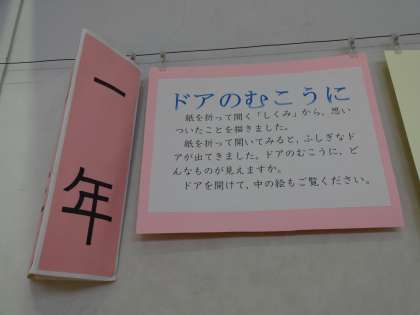 一年
ドアのむこうに
紙を折って開く「しくみ」から、思い
ついたことを描きました。
紙を折って開いてみると、ふしぎなド
アが出てきました。ドアのむこうに、ど
んなものが見えますか。
ドアを開けて、中の絵もご覧ください。